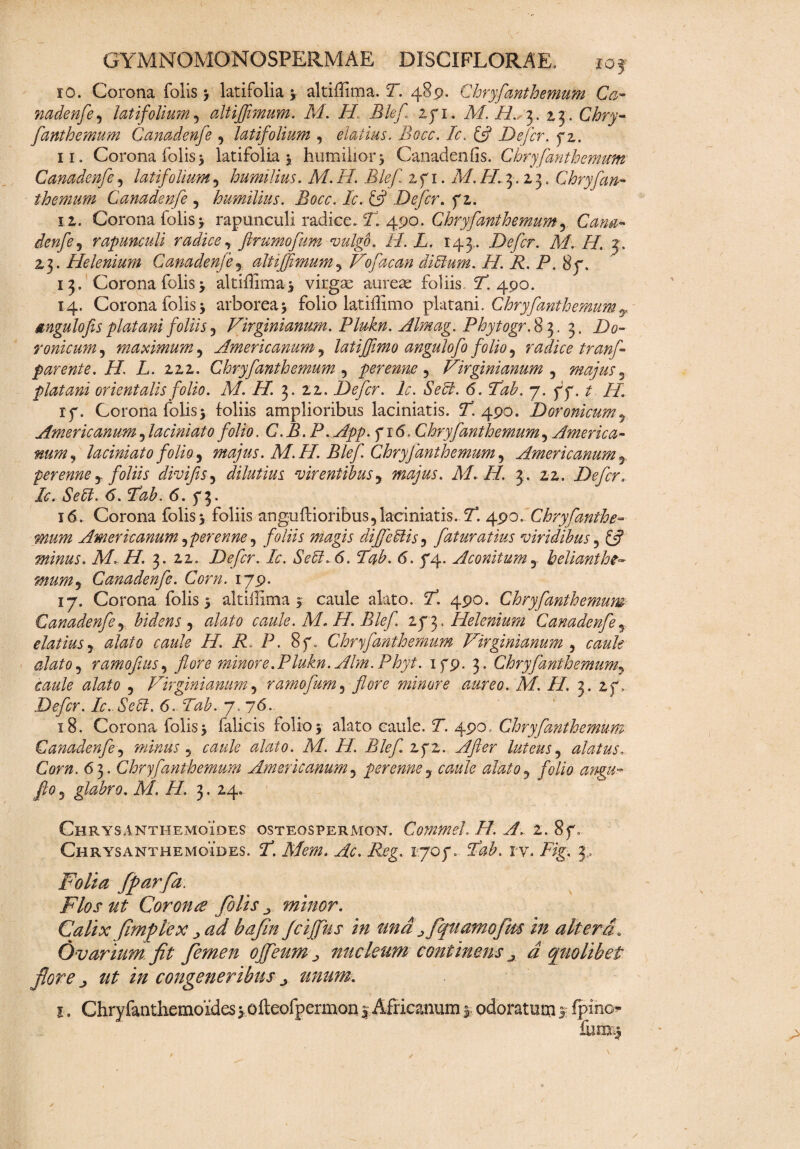 GYMNOMONOSPERMAE DISCIFLORAE. 105
10. Corona ſolis; latifolia; altiſſima. T. 489. Chryſanthemum Ca-
nadenſe, latifolium, altiſſimum. M. H. Bleſ. 251. M. H. 3. 23. Chry-
ſanthemum Canadenſe, latifolium, elatius. Bocc. Ic. & Deſcr. 52.
11. Corona ſolis; latifolia; humilior; Canadenſis. Chryſanthemum
Canadenſe, latifolium, humilius. M. H. Bleſ. 251. M. H. 3. 23. Chryſan-
themum Canadenſe, humilius. Bocc. Ic. & Deſcr. 52.
12. Corona ſolis; rapunculi radice. T. 490. Chryſanthemum, Cana-
denſe, rapunculi radice, ſtrumoſum vulgò. H. L. 143. Deſcr. M. H. 3.
23. Helenium Canadenſe, altiſſimum, Voſacan dictum. H. R. P. 85.
13. Corona ſolis; altiſſima; virgæ aureæ foliis. T. 490.
14. Corona ſolis; arborea; folio latiſſimo platani. Chryſanthemum,
anguloſis platani foliis, Virginianum. Plukn. Almag. Phytogr. 83. 3. Do-
ronicum, maximum, Americanum, latiſſimo anguloſo folio, radice tranſ-
parente. H. L. 222. Chryſanthemum, perenne, Virginianum, majus,
platani orientalis folio. M. H. 3. 22. Deſcr. Ic. Sect. 6. Tab. 7. f 5. t H.
15. Corona ſolis; foliis amplioribus laciniatis. T. 490. Doronicum,
Americanum, laciniato folio. C. B. P. App. 516. Chryſanthemum, America-
num, laciniato folio, majus. M. H. Bleſ. Chryſanthemum, Americanum,
perenne, foliis diviſis, dilutius virentibus, majus. M. H. 3. 22. Deſcr.
Ic. Sect. 6. Tab. 6. 53.
16. Corona ſolis; foliis anguſtioribus, laciniatis. T. 490. Chryſanthe-
mum Americanum, perenne, foliis magis diſſectis, ſaturatius viridibus, &
minus. M. H. 3. 22. Deſcr. Ic. Sect. 6. Tab. 6. 54. Aconitum, helianthe-
mum, Canadenſe. Corn. 179.
17. Corona ſolis; altiſſima; caule alato. T. 490. Chryſanthemum
Canadenſe, bidens, alato caule. M. H. Bleſ. 253. Helenium Canadenſe,
elatius, alato caule H. R. P. 85. Chryſanthemum Virginianum, caule
alato, ramoſius, flore minore. Plukn. Alm. Phyt. 159. 3. Chryſanthemum,
caule alato, Virginianum, ramoſum, flore minore aureo. M. H. 3. 25.
Deſcr. Ic. Sect. 6. Tab. 7. 76.
18. Corona ſolis; ſalicis folio; alato caule. T. 490. Chryſanthemum
Canadenſe, minus, caule alato. M. H. Bleſ. 252. Aſter luteus, alatus.
Corn. 63. Chryſanthemum Americanum, perenne, caule alato, folio angu-
ſto, glabro. M. H. 3. 24.
CHRYSANTHEMOÏDES OSTEOSPERMON. Commel. H. A. 2. 85.
CHRYSANTHEMOÏDES. T. Mem. Ac. Reg. 1705. Tab. IV. Fig. 3.
Folia ſparſa.
Flos ut Coronæ ſolis, minor.
Calix ſimplex, ad baſin ſciſſus in unâ, ſquamoſus in alterâ.
Ovarium fit ſemen oſſeum, nucleum continens, à quolibet
flore, ut in congeneribus, unum.
1. Chryſanthemoïdes; oſteoſpermon; Africanum; odoratum; ſpino-
ſum;